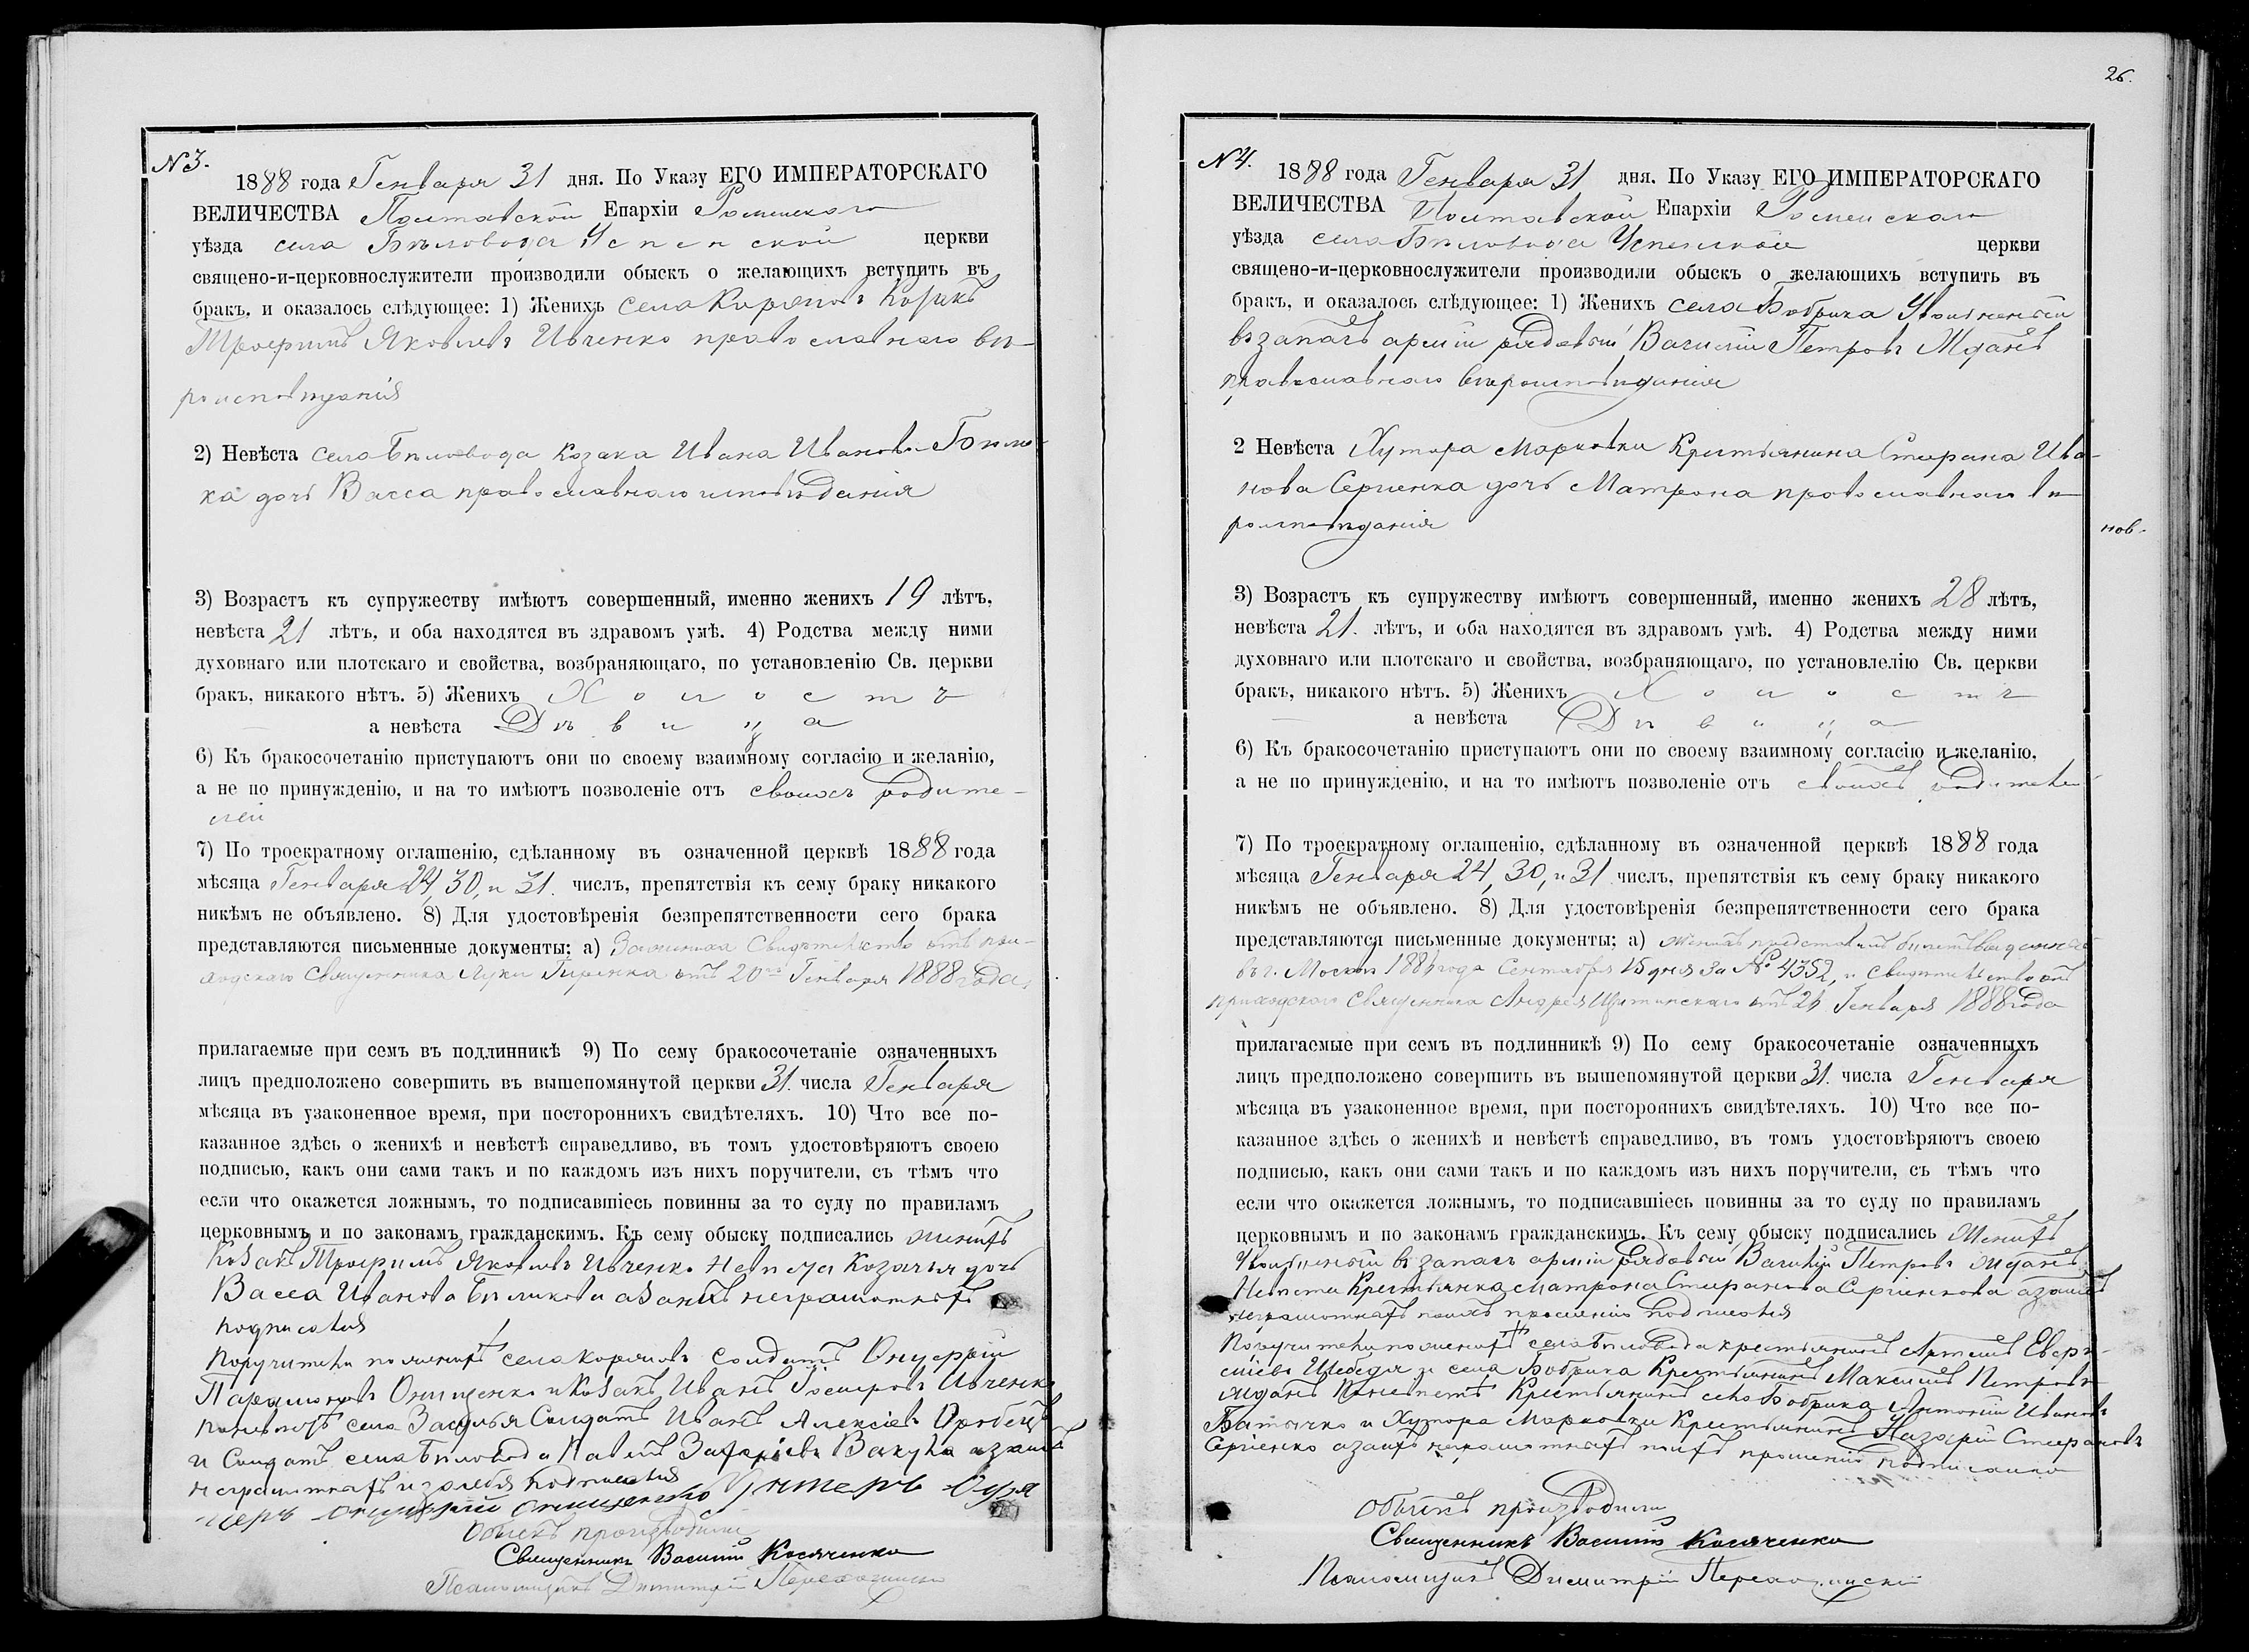 № 3.
1888 года Генваря 31 дня. По Указу ЕГО ИМПЕРАТОРСКАГО
ВЕЛИЧЕСТВА Полтавской Епархіи Роменскаго
уѣзда села Бѣловода Успенской церкви
священо-и-церковнослужители производили обыскъ о желающихъ вступить въ
бракъ, и оказалось слѣдующее: 1) Женихъ села Козакъ
Трофимъ Яковлевъ Ивченко православнаго вѣ-
роисповѣданія
2) Невѣста села Бѣловода Козака Ивана Иванова
ка дочь Васса православнаго исповѣданія
3) Возрастъ къ супружеству имѣютъ совершенный, именно женихъ 19 лѣтъ,
невѣста 21 лѣтъ, и оба находятся въ здравомъ умѣ. 4) Родства между ними
духовнаго или плотскаго и свойства, возбраняющаго, по установленію Св. церкви
бракъ, никакого нѣтъ. 5) Женихъ Холостъ
а невѣста Дѣвица
6) Къ бракосочетанію приступаютъ они по своему взаимному согласію и желанію,
а не по принужденію, и на то имѣютъ позволеніе отъ своихъ родите-
лей
7) По троекратному оглашенію, сдѣланному въ означенной церквѣ 1888 года
мѣсяца Генваря 24, 30, и 31. числъ, препятствія къ сему браку никакого
никѣмъ не объявлено. 8) Для удостовѣренія безпрепятственности сего брака
представляются письменные документы: а) Свидѣтельство отъ при-
ходскаго священника Луки отъ 20го Генваря 1888 года,
прилагаемые при семъ въ подлинникѣ 9) По сему бракосочетаніе означенныхъ
лицъ предположено совершить въ вышепомянутой церкви 31. числа Генваря
мѣсяца въ узаконенное время, при постороннихъ свидѣтеляхъ. 10) Что все по-
казанное здѣсь о женихѣ и невѣстѣ справедливо, въ томъ удостовѣряютъ своею
подписью, какъ они сами такъ и по каждомъ изъ нихъ поручители, съ тѣмъ что
если что окажется ложнымъ, то подписавшіесь повинны за то суду по правиламъ
церковнымъ и по законамъ гражданскимъ. Къ сему обыску подписались женихъ
Козакъ Трофимъ Яковлевъ Ивченко Невѣста Козачья дочь
Васса Иванова неграмотныхъ
подписался
Поручители по женихѣ села солдатъ Онуфрій
Парамоновъ Онищенко и Козакъ Иванъ Ивченко
по невѣстѣ села Засулья Солдатъ Иванъ Алексіевъ
и Солдатъ села Бѣловода Павелъ Вакула а за нихъ
неграмотныхъ и за себя подписался Унтеръ Офи
церъ Онуфрій Онищенко
Обыскъ производили
Священникъ Василій Косяченко
Псаломщикъ Димитрій
26.
№ 4.
1888 года Генваря 31 дня. По Указу ЕГО ИМПЕРАТОРСКАГО
ВЕЛИЧЕСТВА Полтавской Епархіи Роменскаго
уѣзда села Бѣловода Успенской церкви
священо-и-церковнослужители производили обыскъ о желающихъ вступить въ
бракъ, и оказалось слѣдующее: 1) Женихъ села Бобрика Уволенный
въ запасъ арміи рядовый Василій Петровъ Жданъ
православнаго вѣроисповѣданія
2 Невѣста Хутора Марковки Крестьянина Стефана Ива-
нова Сергіенка дочь Матрона православнаго вѣ-
роисповѣданія
нов-
3) Возрастъ къ супружеству имѣютъ совершенный, именно женихъ 28 лѣтъ,
невѣста 21. лѣтъ, и оба находятся въ здравомъ умѣ. 4) Родства между ними
духовнаго или плотскаго и свойства, возбраняющаго, по установлелію Св. церкви
бракъ, никакого нѣтъ. 5) Женихъ Холостъ
а невѣста Дѣвица
6) Къ бракосочетанію приступаютъ они по своему взаимному согласію и желанію,
а не по принужденію, и на то имѣютъ позволеніе отъ своихъ родителей
7) По троекратному оглашенію, сдѣланному въ означенной церквѣ 1888 года
мѣсяца Генваря 24, 30, и 31 числъ, препятствія къ сему браку никакого
никѣмъ не объявлено. 8) Для удостовѣренія безпрепятственности сего брака
представляются письменные документы; а) женихъ представилъ билетъ выданный
въ г. Москвѣ года Сентября 15 дня за № 4352, и свидѣтельство отъ
приходскаго священника Андрея отъ Генваря 1888 года
прилагаемые при семъ въ подлинникѣ 9) По сему бракосочетаніе означенныхъ
лицъ предположено совершить въ вышепомянутой церкви 31. числа Генваря
мѣсяца въ узаконенное время, при постороннихъ свидѣтеляхъ. 10) Что все по-
казанное здѣсь о женихѣ и невѣстѣ справедливо, въ томъ удостовѣряютъ своею
подписью, какъ они сами такъ и по каждомъ изъ нихъ поручители, съ тѣмъ что
если что окажется ложнымъ, то подписавшіесь повинны за то суду по правиламъ
церковнымъ и по законамъ гражданскимъ. Къ сему обыску подписались Женихъ
Уволенный въ запасъ арміи рядовый Василій Петровъ Жданъ
Невѣста Крестьянка Матрона Стефанова Сергіенкова а за нихъ
неграмотныхъ по ихъ прошенію подписался
Поручители по женихѣ села Бѣловода крестьянинъ Артемъ
и села Бобрика Крестьянинъ Максимъ Петровъ
Жданъ По невѣстѣ Крестьянинъ села Бобрика Антоній Ивановъ
и Хутора Марковки Крестьянинъ Назарій Стефановъ
Сергіенко а за нихъ неграмотныхъ по ихъ прошенію
Обыскъ производили
Священникъ Василій Косяченко
Псаломщикъ Димитрій